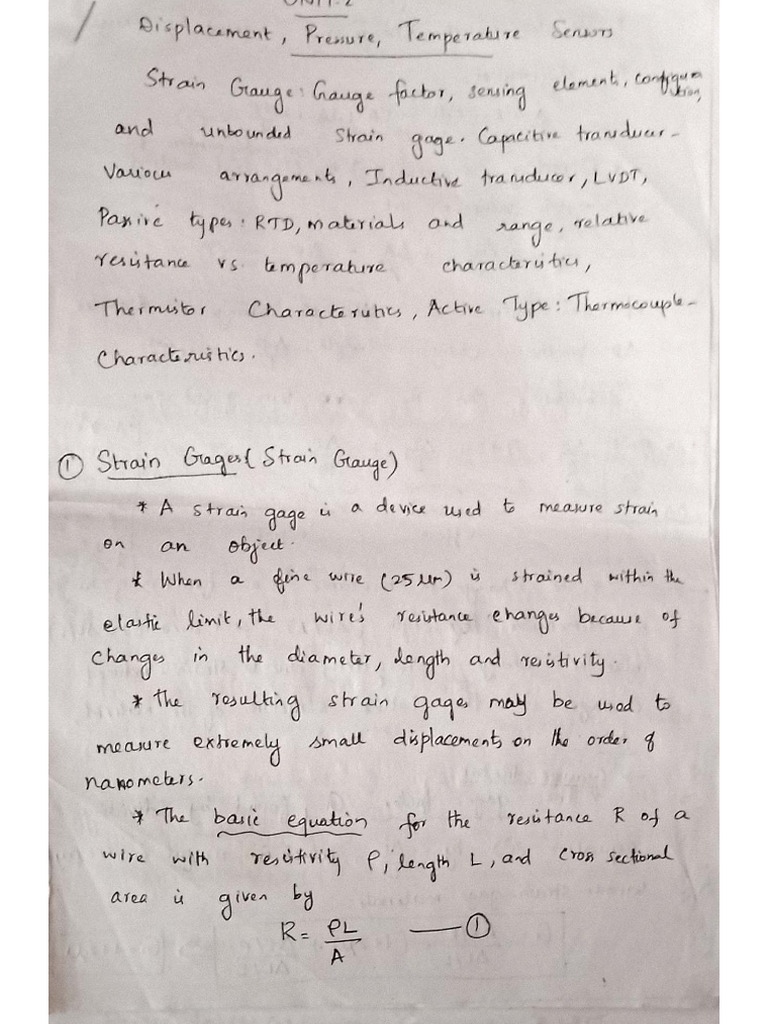 UNIT-2
Displacement, Pressure, Temperature Sensors
Strain Gauge: Gauge factor, sensing element, configuration,
and unbounded strain gage. Capacitive tranducer-
Various arrangements, Inductive tranducer, LVDT,
Passive types: RTD, materials and range, relative
resistance vs temperature characteristics,
Thermistor Characteristics, Active Type: Thermocouple-
Characteristics.
① Strain Gages (Strain Gauge)
* A strain gage is a device used to measure strain
on an object.
* When a fine wire (25 μm) is strained within the
elastic limit, the wire's resistance changes because of
changes in the diameter, length and resistivity.
* The resulting strain gages may be used to
measure extremely small displacements on the order of
nanometers.
* The basic equation for the resistance R of a
wire with resistivity ρ, length L, and cross sectional
area is given by
R = ρL/A —— ①